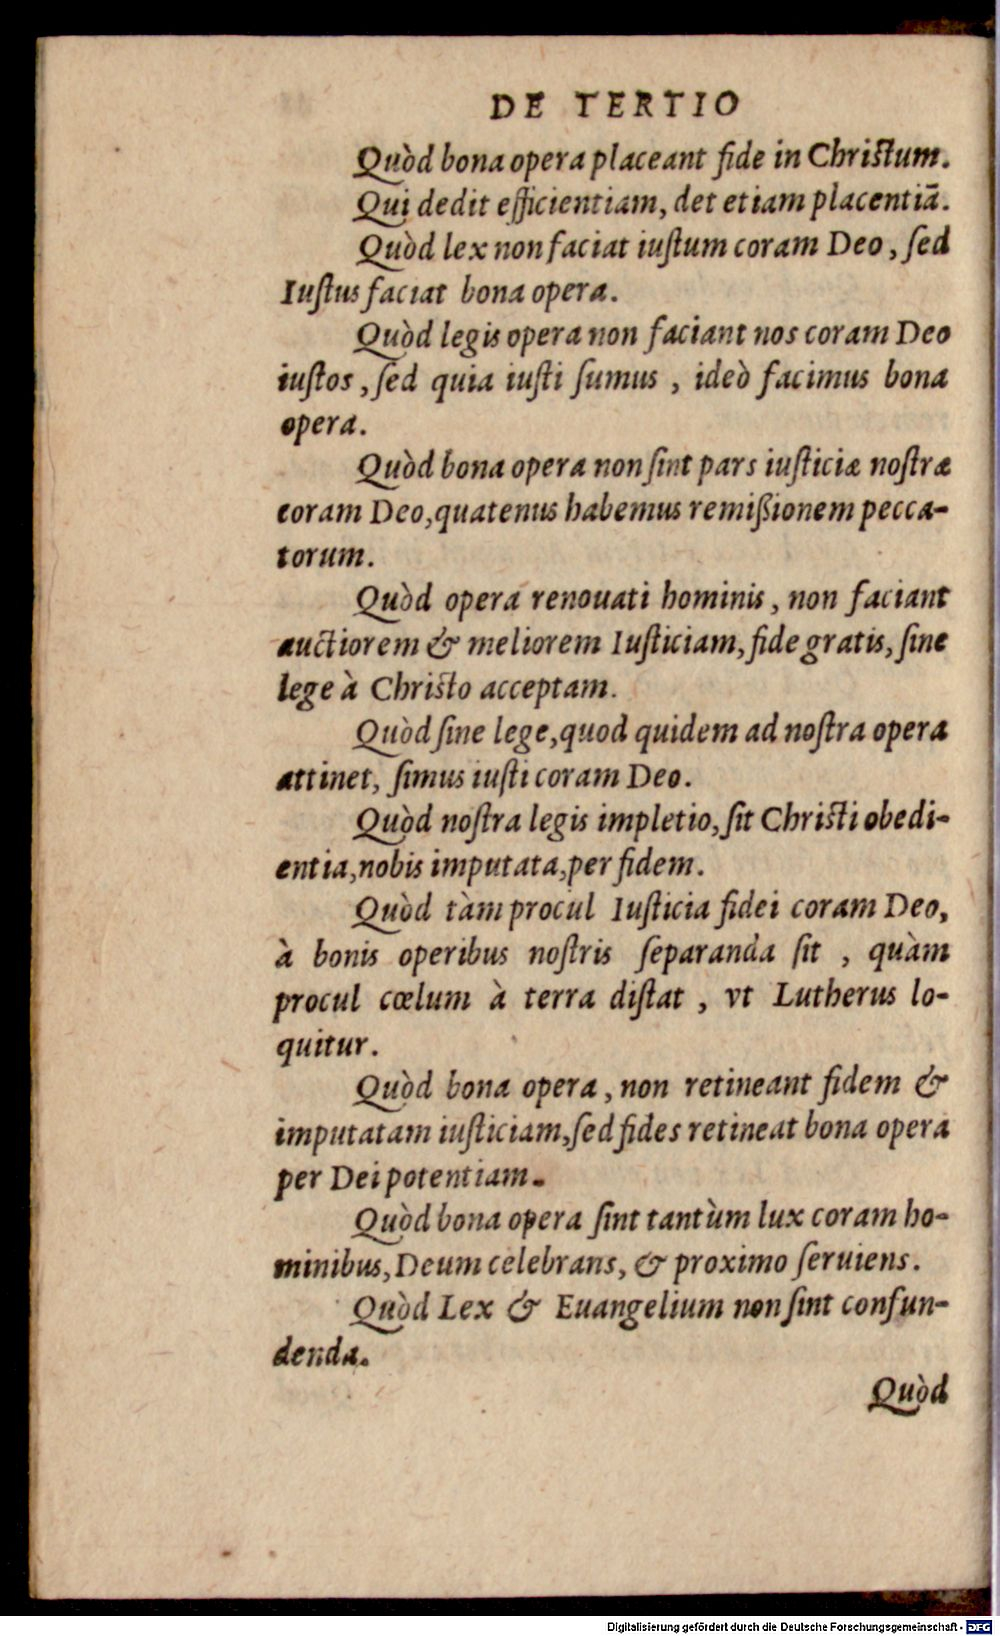 DE TERTIO
Quòd bona opera placeant fide in Christum.
Qui dedit efficientiam, det etiam placentiã.
Quòd lex non faciat iustum coram Deo, sed
Iustus faciat bona opera.
Quòd legis opera non faciant nos coram Deo
iustos, sed quia iusti sumus, ideò facimus bona
opera.
Quòd bona opera non sint pars iusticiæ nostræ
coram Deo, quatenus habemus remißionem pecca-
torum.
Quòd opera renouati hominis, non faciant
auctiorem & meliorem Iusticiam, fide gratis, sine
lege à Christo acceptam.
Quòd sine lege, quod quidem ad nostra opera
attinet, simus iusti coram Deo.
Quòd nostra legis impletio, sit Christi obedi-
entia, nobis imputata, per fidem.
Quòd tàm procul Iusticia fidei coram Deo,
à bonis operibus nostris separanda sit, quàm
procul cœlum à terra distat, vt Lutherus lo-
quitur.
Quòd bona opera, non retineant fidem &
imputatam iusticiam, sed fides retineat bona opera
per Dei potentiam.
Quòd bona opera sint tantùm lux coram ho-
minibus, Deum celebrans, & proximo seruiens.
Quòd Lex & Euangelium non sint confun-
denda.
Quòd
Digitalisierung gefördert durch die Deutsche Forschungsgemeinschaft - DFG